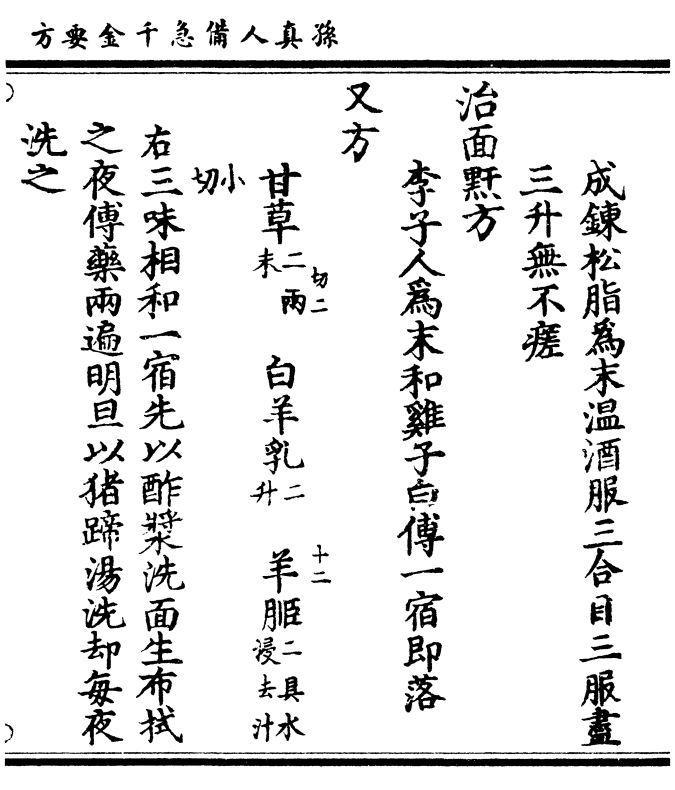 孫真人備急千金要方
成鍊松脂爲末温酒服三合目三服盡
三升無不瘥
治面䵟方
李子人爲末和雞子白傅一宿即落
又方
切二
十二
甘草二兩末 白羊乳二升 羊二具水浸去汁
小切
右三味相和一宿先以酢漿洗面生布拭
之夜傅藥兩遍明旦以猪蹄湯洗却每夜
洗之